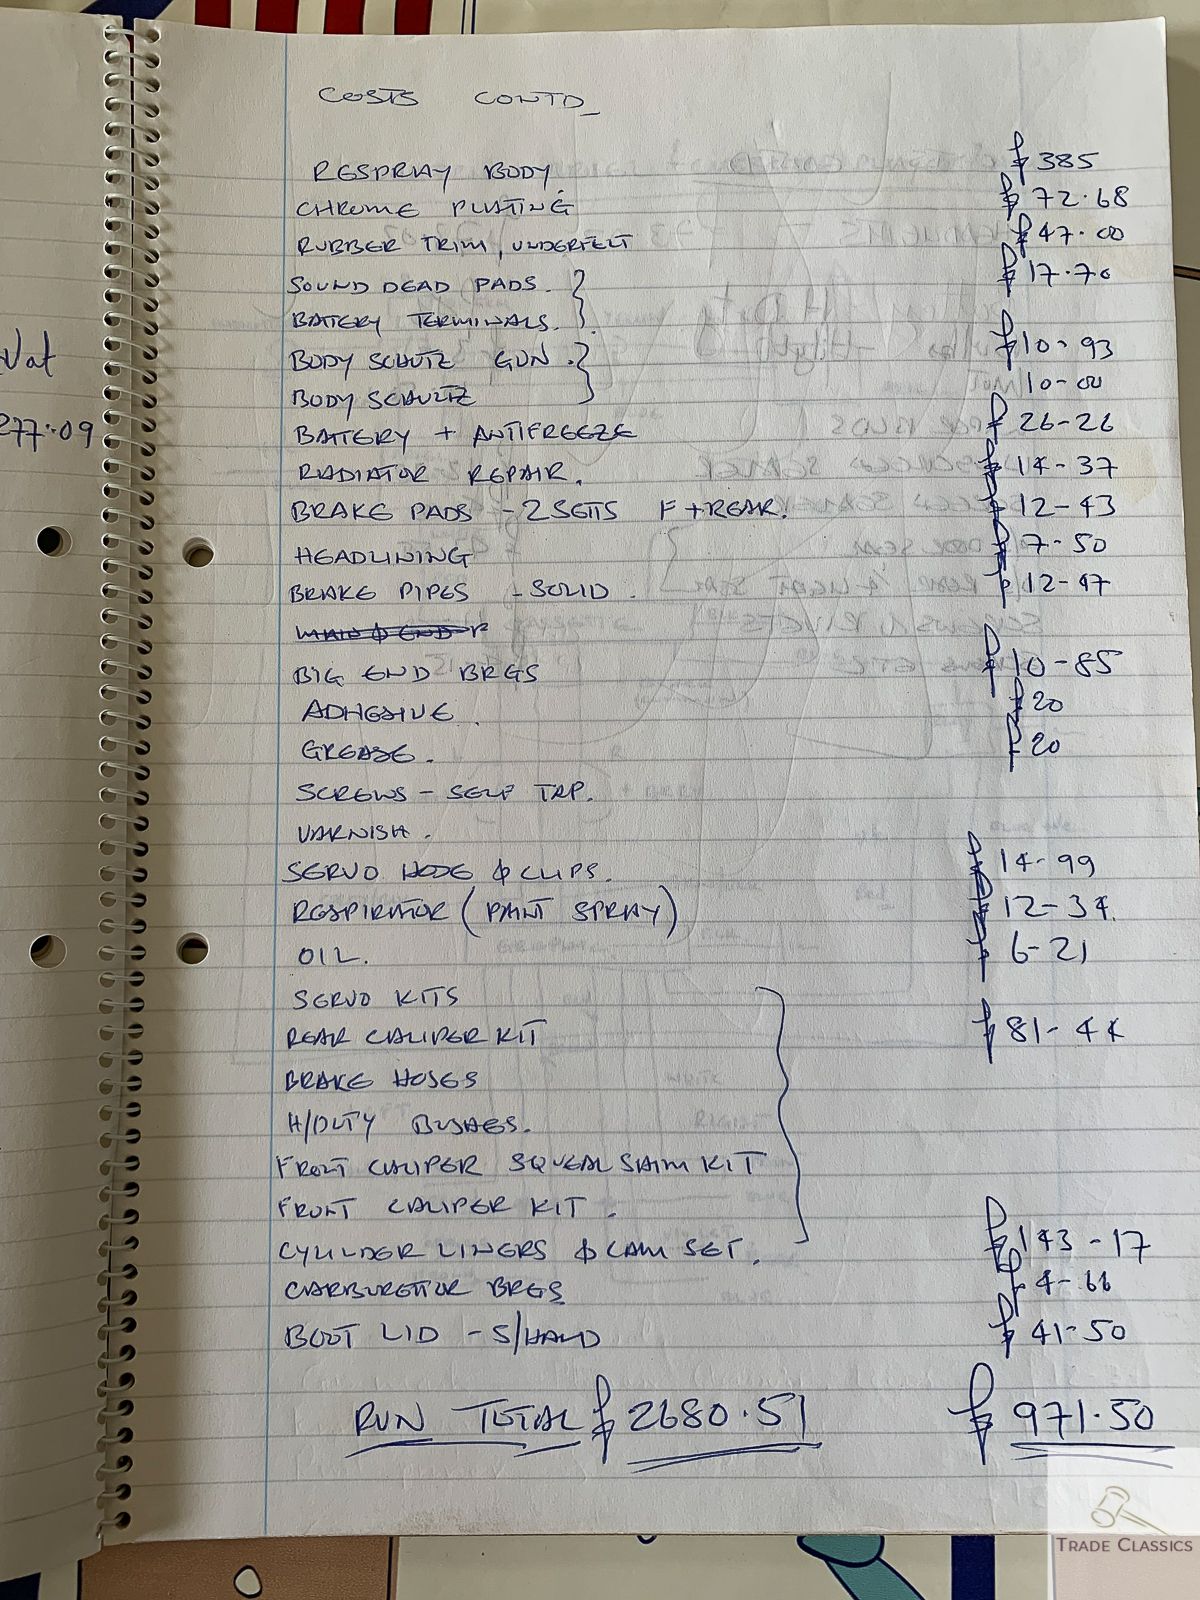 COSTS CONTD_
RESPRAY BODY. £385
CHROME PLATING £72.68
RUBBER TRIM, UNDERFELT £47.00
SOUND DEAD PADS. £17.70
BATERY TERMINALS.
BODY SCHUTZ GUN. £10-93
BODY SCHULTZ 10-00
Vat
277.09
BATTERY + ANTIFREEZE £26-26
RADIATOR REPAIR. £14-37
BRAKE PADS - 2 SETTS F + REAR. £12-43
HEADLINING £7-50
BRAKE PIPES - SOLID. £12-47
BIG END BRGS £10-85
ADHESIVE. £20
GREASE. £20
SCREWS - SELF TAP.
VARNISH.
SERVO HOSE & CLIPS. £14-99
RESPIRATOR (PAINT SPRAY) £12-34.
OIL. £6-21
SERVO KITS
REAR CALIPER KIT £81-44
BRAKE HOSES
H/DUTY BUSHES.
FRONT CALIPER SQUEAL SHIM KIT
FRONT CALIPER KIT.
CYLINDER LINERS & CAM SET. £143-17
CARBURETTOR BRGS £4-66
BOOT LID - S/HAND £41-50
RUN TOTAL £2680.51 £971.50
TRADE CLASSICS